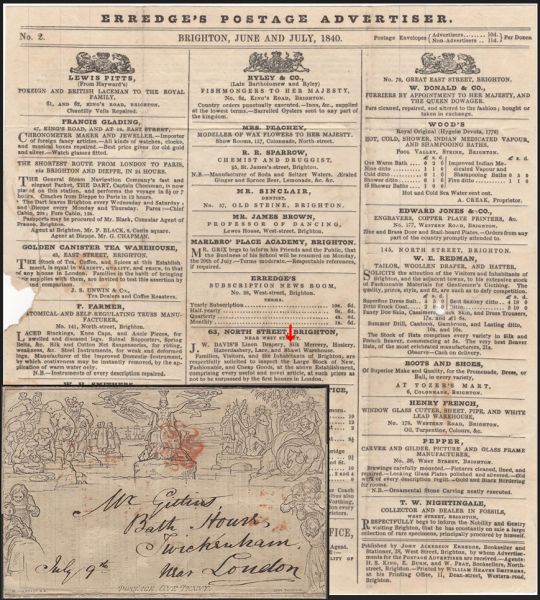 ERREDGE'S POSTAGE ADVERTISER.
No. 2.
BRIGHTON, JUNE AND JULY, 1840.
Postage Envelopes { Advertisers .... 10d. Non-Advertisers .. 11d. } Per Dozen
LEWIS PITTS,
(From Hayward's)
FOREIGN AND BRITISH LACEMAN TO THE ROYAL
FAMILY,
61, AND 62, KING'S ROAD, BRIGHTON,
Chantilly Veils Repaired.
FRANCIS GLADING,
47, KING'S ROAD, AND AT 10, EAST STREET,
CHRONOMETER MAKER AND JEWELLER.—Importer
of foreign fancy articles.—All kinds of watches, clocks,
and musical boxes repaired.—Best price given for old gold
and silver.—Watch glasses fitted.
THE SHORTEST ROUTE FROM LONDON TO PARIS,
via BRIGHTON AND DIEPPE, IN 24 HOURS.
THE General Steam Navigation Company's fast and
elegant Packet, THE DART, Captain Cheesman, is now
placed on this station, and performs the voyage in 6½ or 7
hours. Chaises from Dieppe to Paris in 12 hours.
The Dart leaves Brighton every Wednesday and Saturday;
and Dieppe every Monday and Thursday. Fares:—Chief
Cabin, 20s; Fore Cabin, 15s.
Passports may be procured of Mr. Black, Consular Agent of
France, Brighton.
Agent at Brighton, Mr. P. BLACK, 8, Castle square.
Agent at Dieppe, Mr. G. CHAPMAN.
GOLDEN CANISTER TEA WAREHOUSE,
45, EAST STREET, BRIGHTON.
THE Stock of Tea, Coffee, and Spices at this Establish
ment, is equal in VARIETY, QUALITY, and PRICE, to that
of any house in London. Families in the habit of bringing
supplies with them, are invited to test this assertion by
and comparison.
J. S. ENWIN & Co.,
Tea Dealers and Coffee Roasters.
F. FARMER,
ANATOMICAL AND SELF-REGULATING TRUSS MANU-
FACTURER,
No. 141, North street, Brighton.
LACED Stockings, Knee Caps, and Ancle Pieces, for
swelled and diseased legs. Spinal Supporters, Spring
Belts, &c. Suspensory Belts, Silk Nets and Cotton for riding,
weakness, &c. Steel Instruments, for weak and deformed
legs. Manufacturer of the improved Domestic Instrument,
by which costiveness may be instantly removed, by the
application of warm water only.
N.B.—Instruments of every description repaired.
RYLEY & CO.,
(Late Bartholomew and Ryley)
FISHMONGERS TO HER MAJESTY,
No. 64, King's Road, Brighton.
Country orders punctually executed.—Inns, &c., supplied
at the lowest terms.—Barrelled Oysters sent to any part of
the kingdom.
MRS. PEACHEY,
MODELLER OF WAX FLOWERS TO HER MAJESTY.
Show Rooms, 127, Colonnade, North street.
R. B. SPARROW,
CHEMIST AND DRUGGIST,
93, St. James's street, Brighton.
N.B.—Manufacturer of Soda and Seltzer Waters, Ærated
Ginger and Spruce Beer, Lemonade, &c. &c.
MR. SINCLAIR,
DENTIST,
No. 57, OLD STEINE, BRIGHTON.
MR. JAMES BROWN,
PROFESSOR OF DANCING,
Lewes House, West-street, Brighton.
MARLBRO' PLACE ACADEMY, BRIGHTON.
MR. GARK begs to inform his Friends and the Public, that
the Business of this School will be resumed on Monday,
the 20th of July.—Terms moderate.—Respectable references,
if required.
ERREDGE'S
SUBSCRIPTION NEWS ROOM,
No. 38, West-street, Brighton.
TERMS.
Yearly Subscription
Half-yearly
Quarterly
Monthly
63, NORTH STREET, BRIGHTON,
NEAR WEST STREET.
J. W. DAVIS'S Linen Drapery, Silk Mercery, Hosiery,
Haberdashery, Lace, and Shawl Warehouse.
Families, Visitors, and the Inhabitants of Brighton, are
respectfully solicited to inspect the Large Stock of New,
Fashionable, and Cheap Goods, at the above Establishment,
comprising every useful and novel article, at such prices as
not to be surpassed by the first houses in London.
No. 79, GREAT EAST STREET, BRIGHTON.
W. DONALD & CO.,
FURRIERS BY APPOINTMENT TO HER MAJESTY, AND
THE QUEEN DOWAGER.
Furs cleaned, repaired, and altered to the fashion; bought or
taken in exchange.
WOOD'S
Royal Original (Hygeia Devota, 1776)
HOT, COLD, SHOWER, INDIAN MEDICATED VAPOUR,
AND SHAMPOOING BATHS.
POOL VALLEY, STEINE, BRIGHTON.
Hot and Cold Sea Water sent out.
A. CREAK, Proprietor.
EDWARD JONES & CO.,
ENGRAVERS, COPPER PLATE PRINTERS, &c.
No. 177, WESTERN ROAD, BRIGHTON.
Zinc and Brass Door and Stall-board Plates.—Orders from any
part of the country promptly attended to.
145, NORTH STREET, BRIGHTON.
W. E. REDMAN,
TAILOR, WOOLLEN DRAPER, AND HATTER,
Summer Drill, Cantoon, Gambroon, and Lasting ditto,
10s. and 16s.
Observe—Cash on delivery.
BOOTS AND SHOES,
Of Superior Make and Quality, for the Promenade, Dress, or
Ball, in every variety,
AT TOZER'S MART,
6, COLONNADE, BRIGHTON.
HENRY FRENCH,
WINDOW GLASS CUTTER, SHEET, PIPE, AND WHITE
LEAD WAREHOUSE,
No. 178, WESTERN ROAD, BRIGHTON.
Oil, Turpentine, Colours, &c.
PEPPER,
CARVER AND GILDER, PICTURE AND GLASS FRAME
MANUFACTURER,
No. 36, WEST STREET, BRIGHTON.
Drawings carefully mounted.—Pictures cleaned, lined, and
repaired.—Looking Glass Plates polished and silvered.—Old
work of every description regilt.—Gold Beading and Border
for rooms.
N.B.—Ornamental Stone Carving neatly executed.
T. W. NIGHTINGALE,
COLLECTOR AND DEALER IN FOSSILS,
WEST STREET, BRIGHTON,
RESPECTFULLY begs to inform the Nobility and Gentry
visiting Brighton, that he has constantly on sale a large
collection of rare specimens, principally procured by himself.
Published by JOHN ACKERSON ERREDGE, Bookseller and
Stationer, 38, West Street, Brighton, by whom Advertise-
ments for the POSTAGE ADVERTISER are received.
Mr Gitters
Bath House,
Twickenham,
Near London
July 9th
POSTAGE ONE PENNY.